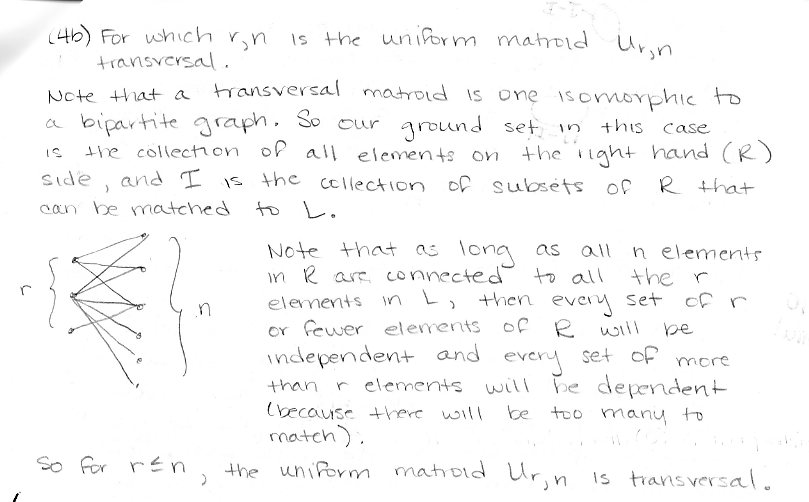 (4b) For which r,n is the uniform matroid Ur,n
transversal.
Note that a transversal matroid is one isomorphic to
a bipartite graph. So our ground set, in this case
is the collection of all elements on the right hand (R)
side, and I is the collection of subsets of R that
can be matched to L.
Note that as long as all n elements
in R are connected to all the r
elements in L, then every set of r
or fewer elements of R will be
independent and every set of more
than r elements will be dependent
(because there will be too many to
match).
r
n
So for r≤n, the uniform matroid Ur,n is transversal.